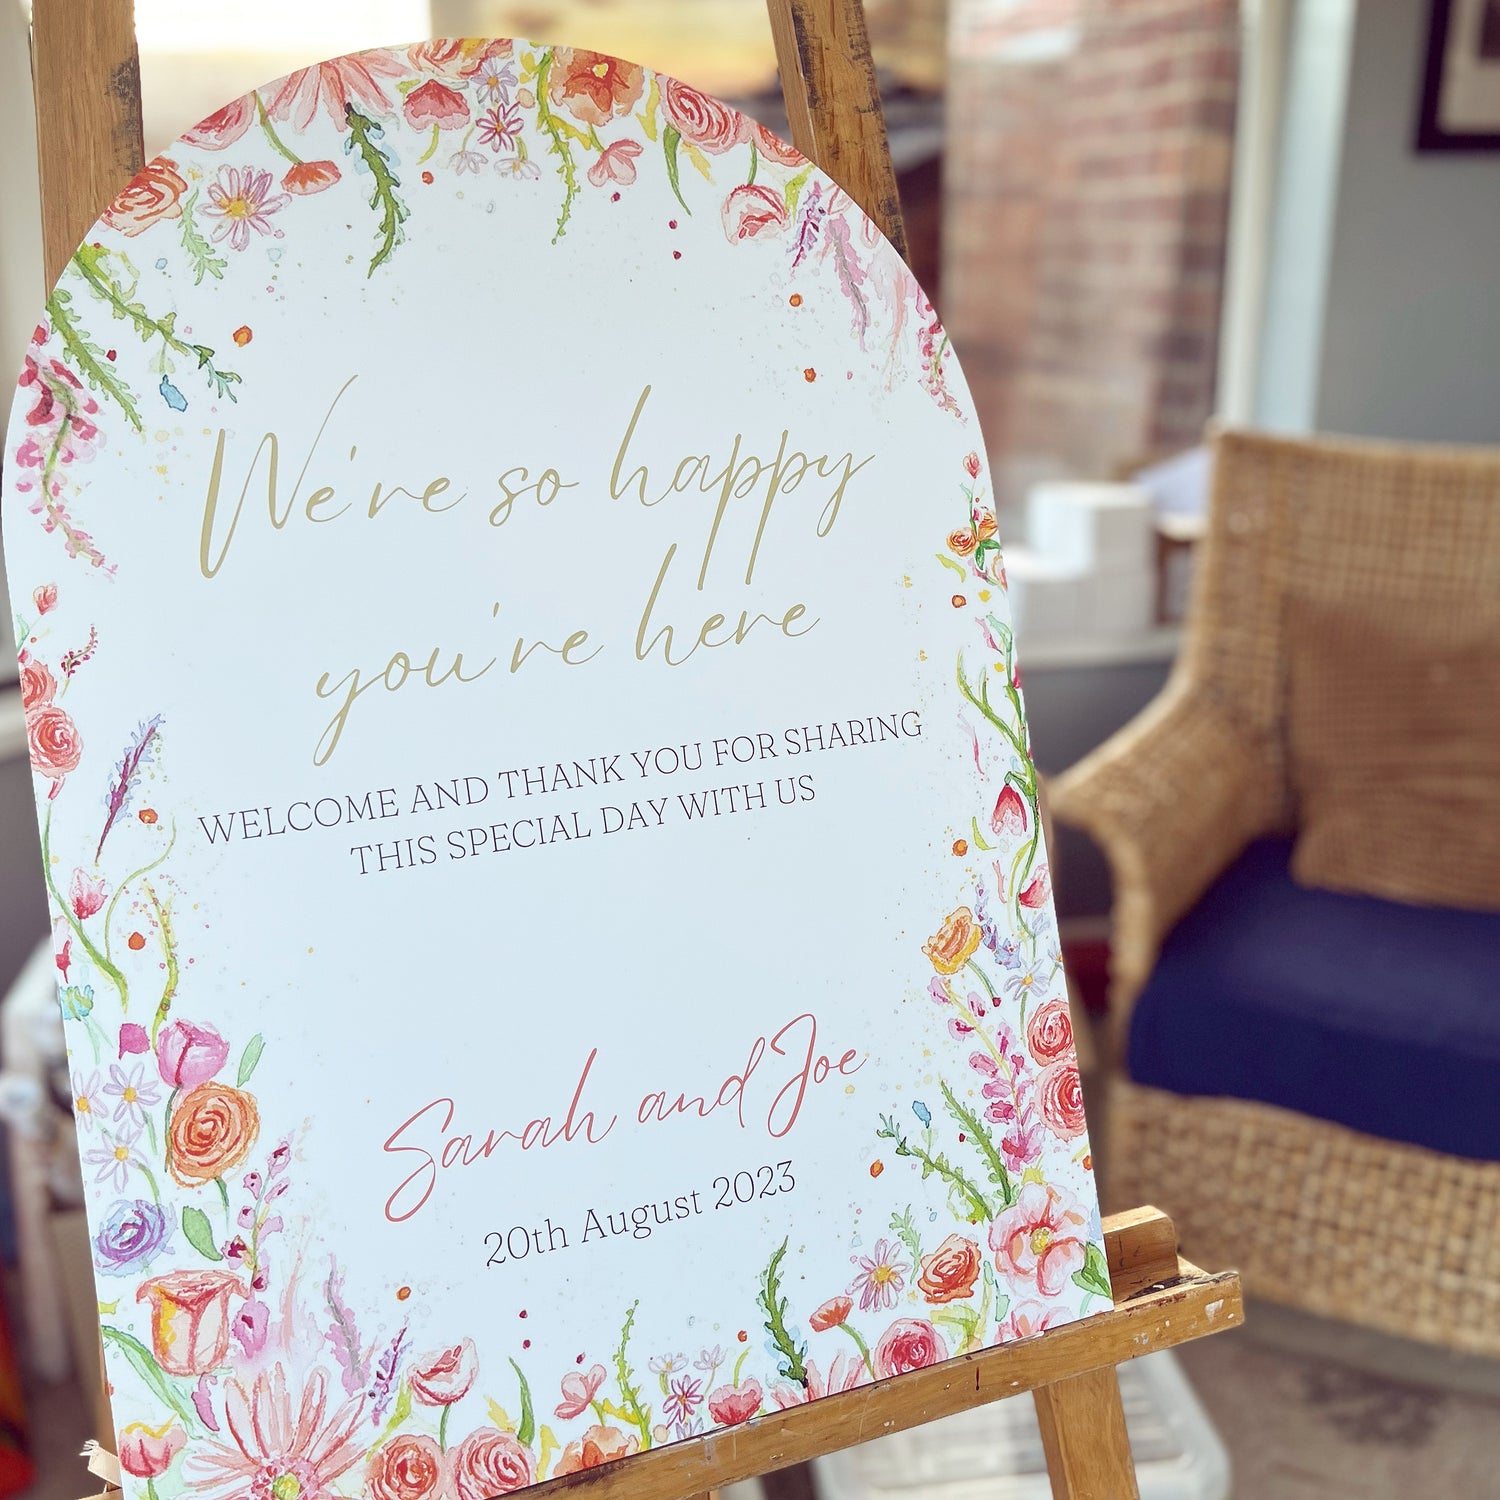 We're so happy
you're here
WELCOME AND THANK YOU FOR SHARING
THIS SPECIAL DAY WITH US
Sarah and Joe
20th August 2023